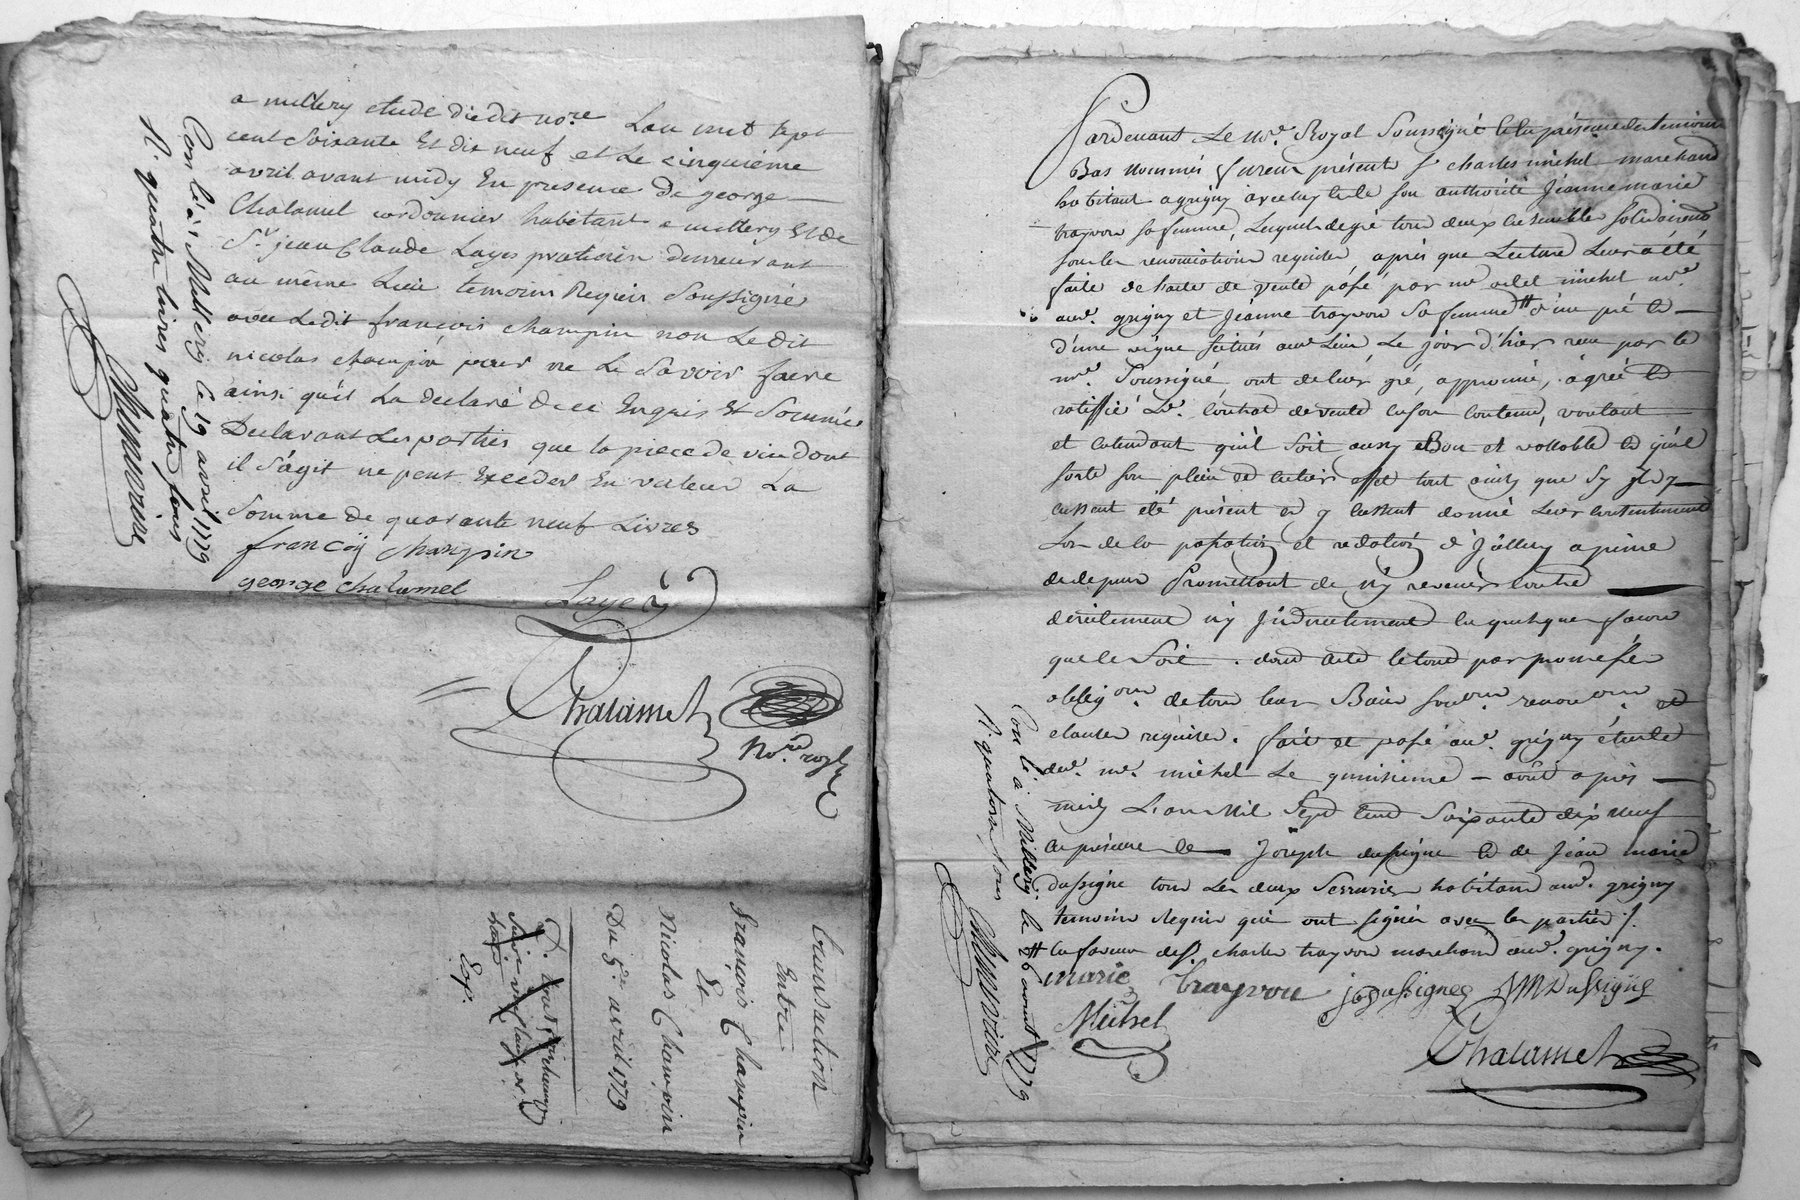 a millery etude dudit no.re L'an mil sept
cent soixante Et dix neuf et le cinquième
avril avant midy En presence de george
Chalamel cordonnier habitant a millery Et de
Sr. jean Claude Layes praticien demeurant
au même Lieu temoins Requis Soussignés
avec Ledit françois champin non Ledit
nicolas champin pour ne Le Savoir faire
ainsi qu'il La declaré de ce Enquis Et Sommé
Declarant Les parties que la piece de vin dont
il s'agit ne peut Exceder En valeur La
Somme de quarante neuf Livres
françoÿ champin
george chalamel
Layes
Chalamel
No.re royal
Con.lé à Millery le 19 avril 1779
R. quatre livres quatre sous
Transaction
Entre
François Champin
Et
Nicolas Champin
Du 5e avril 1779
Exp.
Pardevant Le no.re Royal Soussigné Et En présence des temoins
Bas nommés furent présents sr charles michel marchand
habitant a grigny avec luy et de son authorité Jeanne marie
trayvou sa femme, Lesquels de gré tous deux ensemble solidairement
sous les renonciations requises après que Lecture Leur a été
faite de l'acte de vente passé par me michel no.re
aud. grigny et Jeanne trayvou sa femme # d'un pré et
d'une vigne situés aud. Lieu Le jour d'hier reçu par le
no.re Soussigné, ont de leur gré, approuvé, agréé et
ratiffié Led. contrat de vente en son contenu, voulant
et entendant qu'il soit aussy Bon et vallable et qu'il
sorte son plein et entier effet tout ainsy que sy ils y
eussent été présent et y eussent donné Leur consentement
Lors de la passation et redaction d'Icelluy a peine
de depens Promettant de n'y revenir contre
directement n'y Indirectement en quelque façon
que ce Soit. dont acte le tout par promesses
oblig.ons de tous leurs Biens soum.ons renon.ons et
clauses requises. fait et passé aud. grigny étude
dud. me. michel Le quinzieme août après
midy L'an Mil Sept Cent Soixante dix neuf
en présence de Joseph dussigne et de Jean marie
dussigne tous Les deux Serruriers habitans aud. grigny
temoins Requis qui ont signés avec les parties /.
# en faveur de sr. charles trayvou marchand aud. grigny.
marie trayvou jo Dussigne JM Dussigne
Michel
Chalamel
Con.lé à Millery le 26 aout 1779
R. quatorze sous